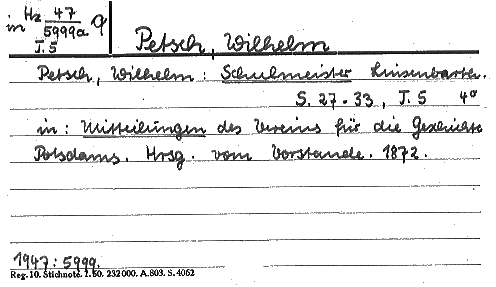 in Hz 47/5999a q
T.5
Petsch, Wilhelm
Petsch, Wilhelm: Schulmeister Linsenbarth.
S. 27-33, T. 5 4°
in: Mitteilungen des Vereins für die Geschichte
Potsdams. Hrsg. vom Vorstande. 1872.
1947: 5999.
Reg. 10. Stichnote. 1. 50. 232000. A.803. S. 4062